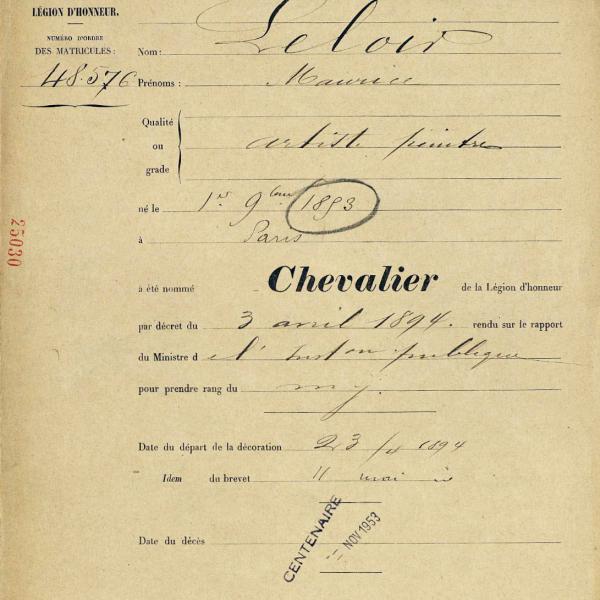 LÉGION D'HONNEUR.
NUMÉRO D'ORDRE
DES MATRICULES:
48.576
Nom: Leloir
Prénoms: Maurice
Qualité
ou
grade
artiste peintre
né le 1er 9bre 1853
à Paris
25030
a été nommé Chevalier de la Légion d'honneur
par décret du 3 avril 1894. rendu sur le rapport
du Ministre de l'Inston publique
pour prendre rang du
Date du départ de la décoration 23/4 1894
Idem du brevet 11 mai
CENTENAIRE
NOV 1953
Date du décès